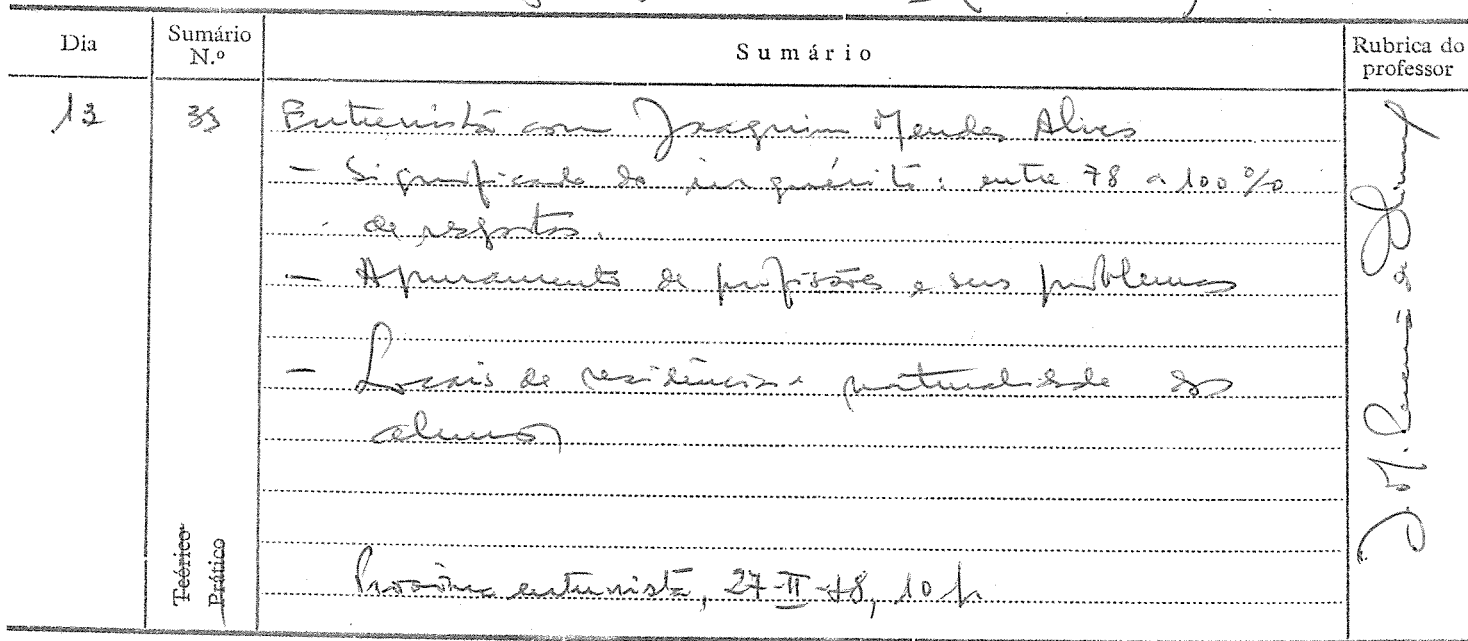 Dia
Sumário N.º
Sumário
Rubrica do professor
13
35
Entrevista com Joaquim Mendes Alves
- Significado do inquérito: entre 78 a 100%
de respostas.
- Apuramento de profissões e seus problemas
- Locais de residência e naturalidade dos
alunos
Teórico
Prático
Próxima entrevista, 27-II-78, 10 h